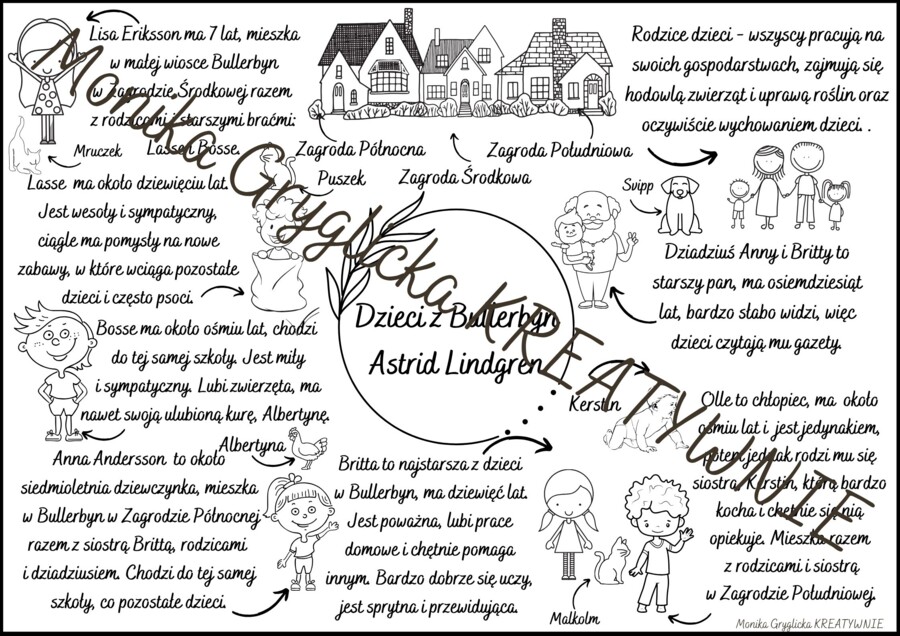 Lisa Eriksson ma 7 lat, mieszka
w małej wiosce Bullerbyn
w zagrodzie Środkowej razem
z rodzicami i starszymi braćmi:
Lasse i Bosse.
Mruczek
Lasse ma około dziewięciu lat.
Jest wesoły i sympatyczny,
ciągle ma pomysły na nowe
zabawy, w które wciąga pozostałe
dzieci i często psoci.
Bosse ma około ośmiu lat, chodzi
do tej samej szkoły. Jest miły
i sympatyczny. Lubi zwierzęta, ma
nawet swoją ulubioną kurę, Albertynę.
Albertyna
Anna Andersson to około
siedmioletnia dziewczynka, mieszka
w Bullerbyn w Zagrodzie Północnej
razem z siostrą Brittą, rodzicami
i dziadziusiem. Chodzi do tej samej
szkoły, co pozostałe dzieci.
Zagroda Północna
Zagroda Południowa
Puszek
Zagroda Środkowa
Dzieci z Bullerbyn
Astrid Lindgren
Britta to najstarsza z dzieci
w Bullerbyn, ma dziewięć lat.
Jest poważna, lubi prace
domowe i chętnie pomaga
innym. Bardzo dobrze się uczy,
jest sprytna i przewidująca.
Rodzice dzieci - wszyscy pracują na
swoich gospodarstwach, zajmują się
hodowlą zwierząt i uprawą roślin oraz
oczywiście wychowaniem dzieci. .
Svipp
Dziadziuś Anny i Britty to
starszy pan, ma osiemdziesiąt
lat, bardzo słabo widzi, więc
dzieci czytają mu gazety.
Kerstin
Olle to chłopiec, ma około
ośmiu lat i jest jedynakiem,
potem jednak rodzi mu się
siostra, Kerstin, którą bardzo
kocha i chętnie się nią
opiekuje. Mieszka razem
z rodzicami i siostrą
w Zagrodzie Południowej.
Malkolm
Monika Gryglicka KREATYWNIE
Monika Gryglicka KREATYWNIE